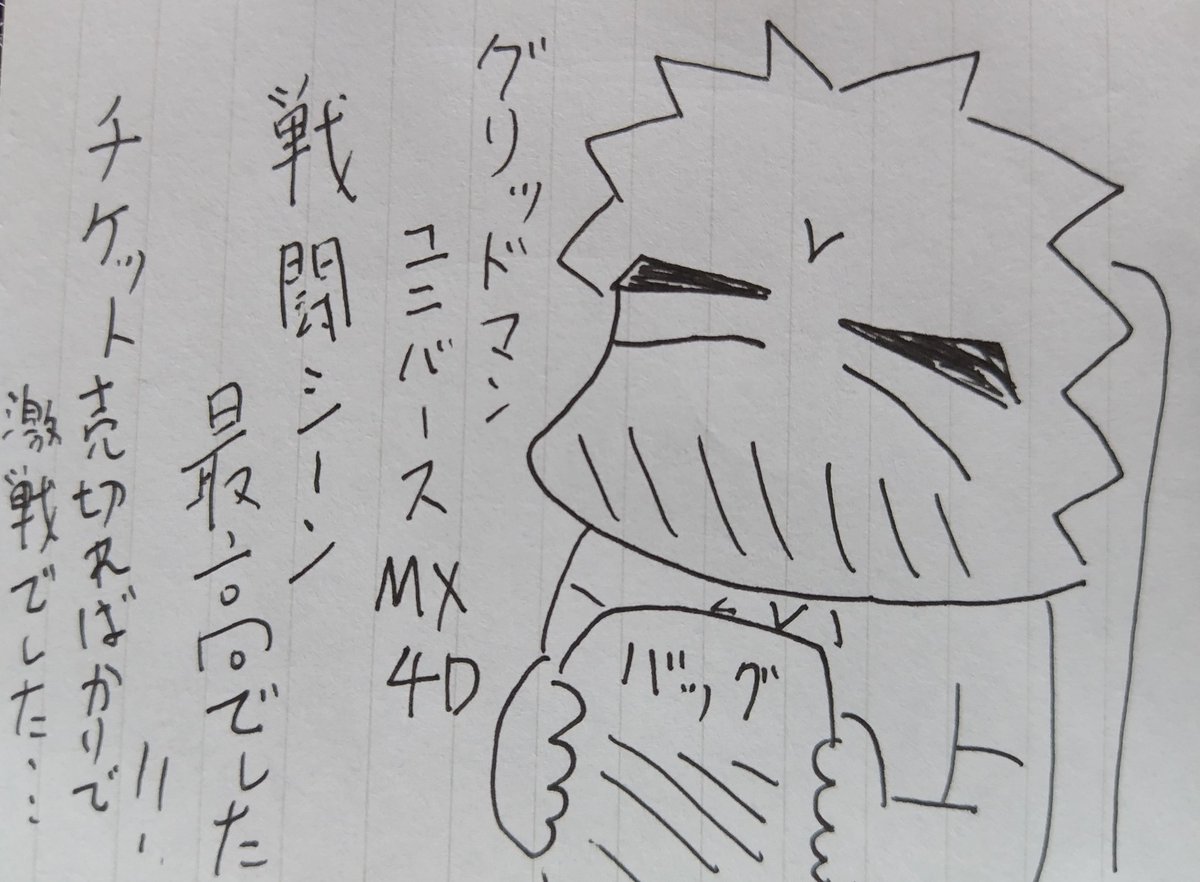 グリッドマン
ユニバース MX
4D
戦闘シーン
最高でした!!
チケット売切ればかりで
激戦でした…
バッグ